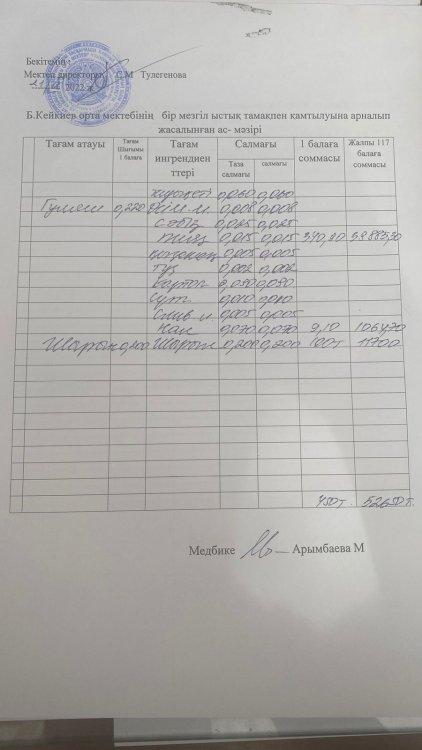 Бекітемін
Мектеп директоры С.М Тулегенова
2022 ж
Б.Кейкиев орта мектебінің бір мезгіл ыстық тамақпен қамтылуына арналып
жасалынған ас- мәзірі
Тағам атауы Тағам Шығымы 1 балаға Тағам ингрендиенттері Салмағы 1 балаға соммасы Жалпы 117 балаға соммасы
Таза салмағы салмағы
0,060 0,060
Гуляш 0,220 0,008 0,008
Сәбіз 0,025 0,025
Пияз 0,015 0,015
0,005 0,005
Тұз 0,002 0,002
Картоп 0,090 0,090
Сүт 0,010 0,010
Слив м 0,005 0,005
Нан 0,070 0,070 9,10 1064,70
Шырын 0,200 Шырын 0,200 0,200 100т 11700
450т. 52650т.
Медбике Арымбаева М